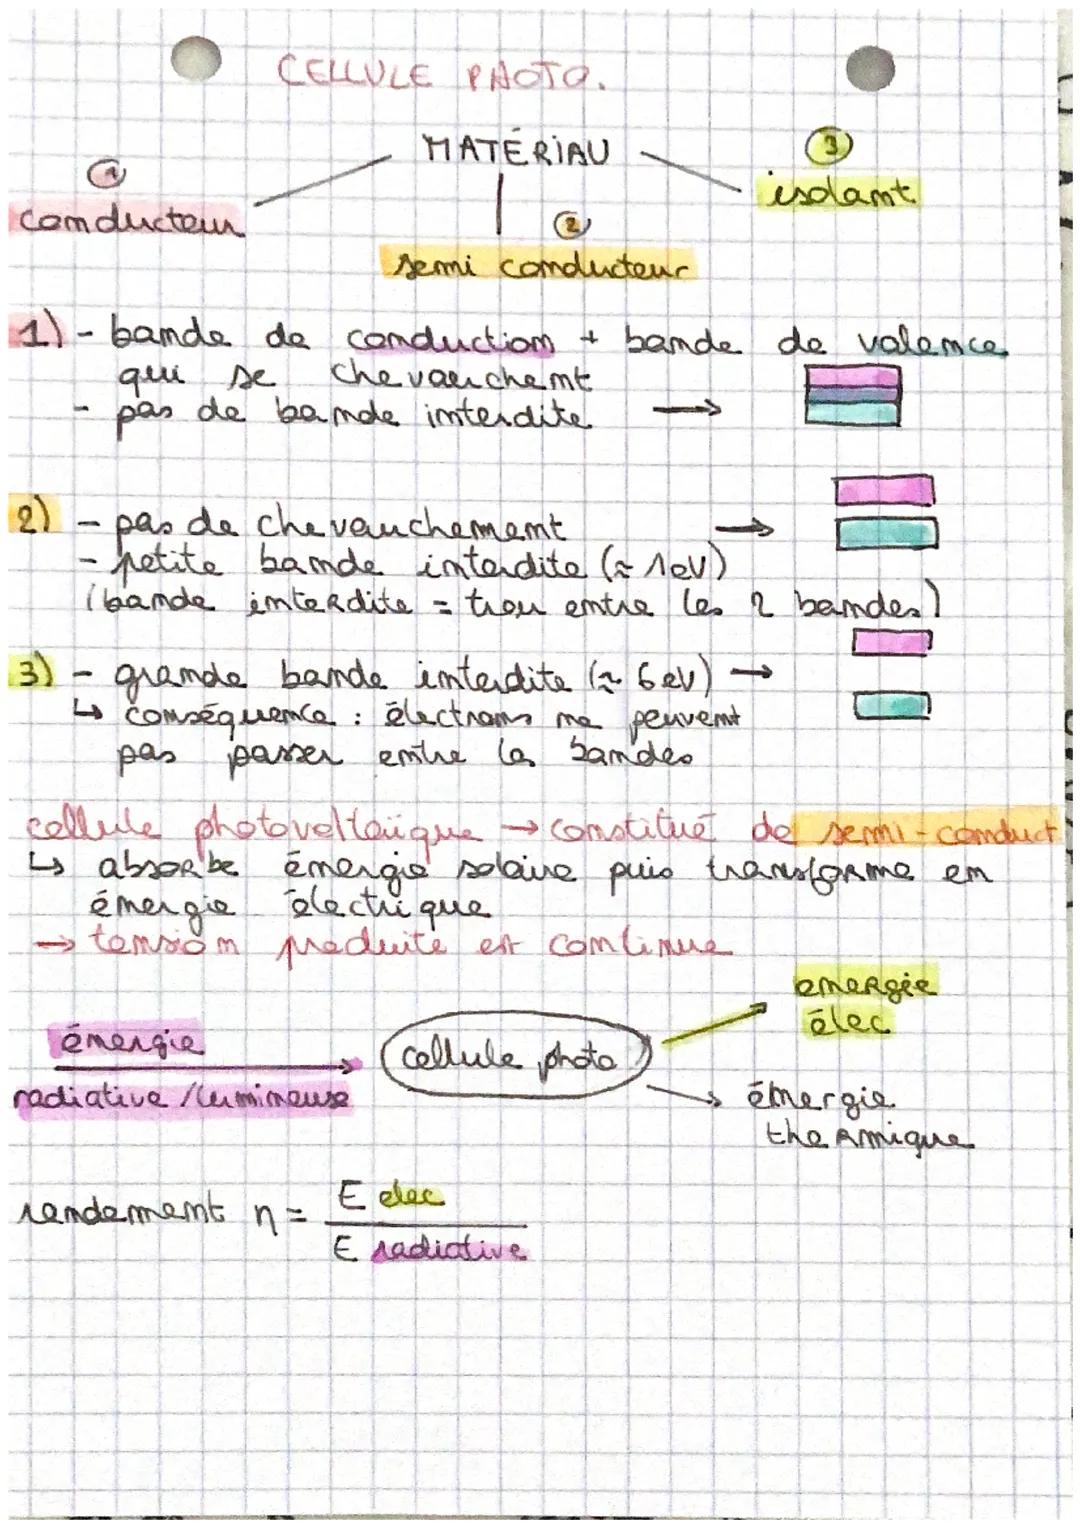 CELLULE PHOTO.
MATÉRIAU
1
conducteur
2
semi conducteur
3
isolant
1) - bande de conduction + bande de valence
qui se chevauchent
- pas de bande interdite →
2) - pas de chevauchement →
- petite bande interdite (≈ 1eV)
(bande interdite = trou entre les 2 bandes)
3) - grande bande interdite (≈ 6eV) →
↳ conséquence : électrons ne peuvent
pas passer entre les bandes
cellule photovoltaïque → constitué de semi-conduct
↳ absorbe énergie solaire puis transforme en
énergie électrique
→ tension produite est continue
énergie
radiative / lumineuse
cellule photo
energie
élec
énergie
thermique
rendement η = E elec
E radiative